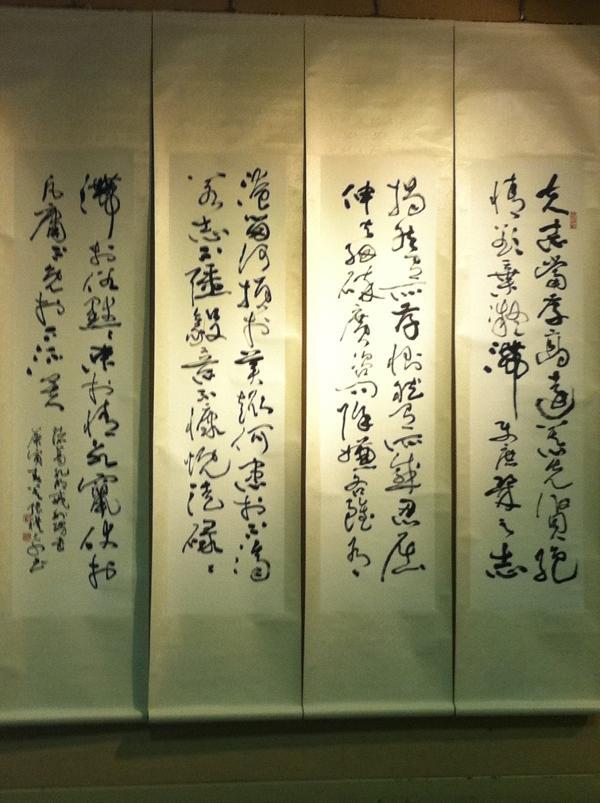 夫志當存高遠慕先賢絕
情欲棄凝滯使庶幾之志
揭然有所存惻然有所感忍屈
伸去細碎廣咨問除嫌吝雖有
淹留何損於美趣何患於不濟
若志不強毅意不慷慨徒碌碌
滯於俗默默束於情永竄伏於
凡庸不免於下流矣
諸葛孔明誡外甥書